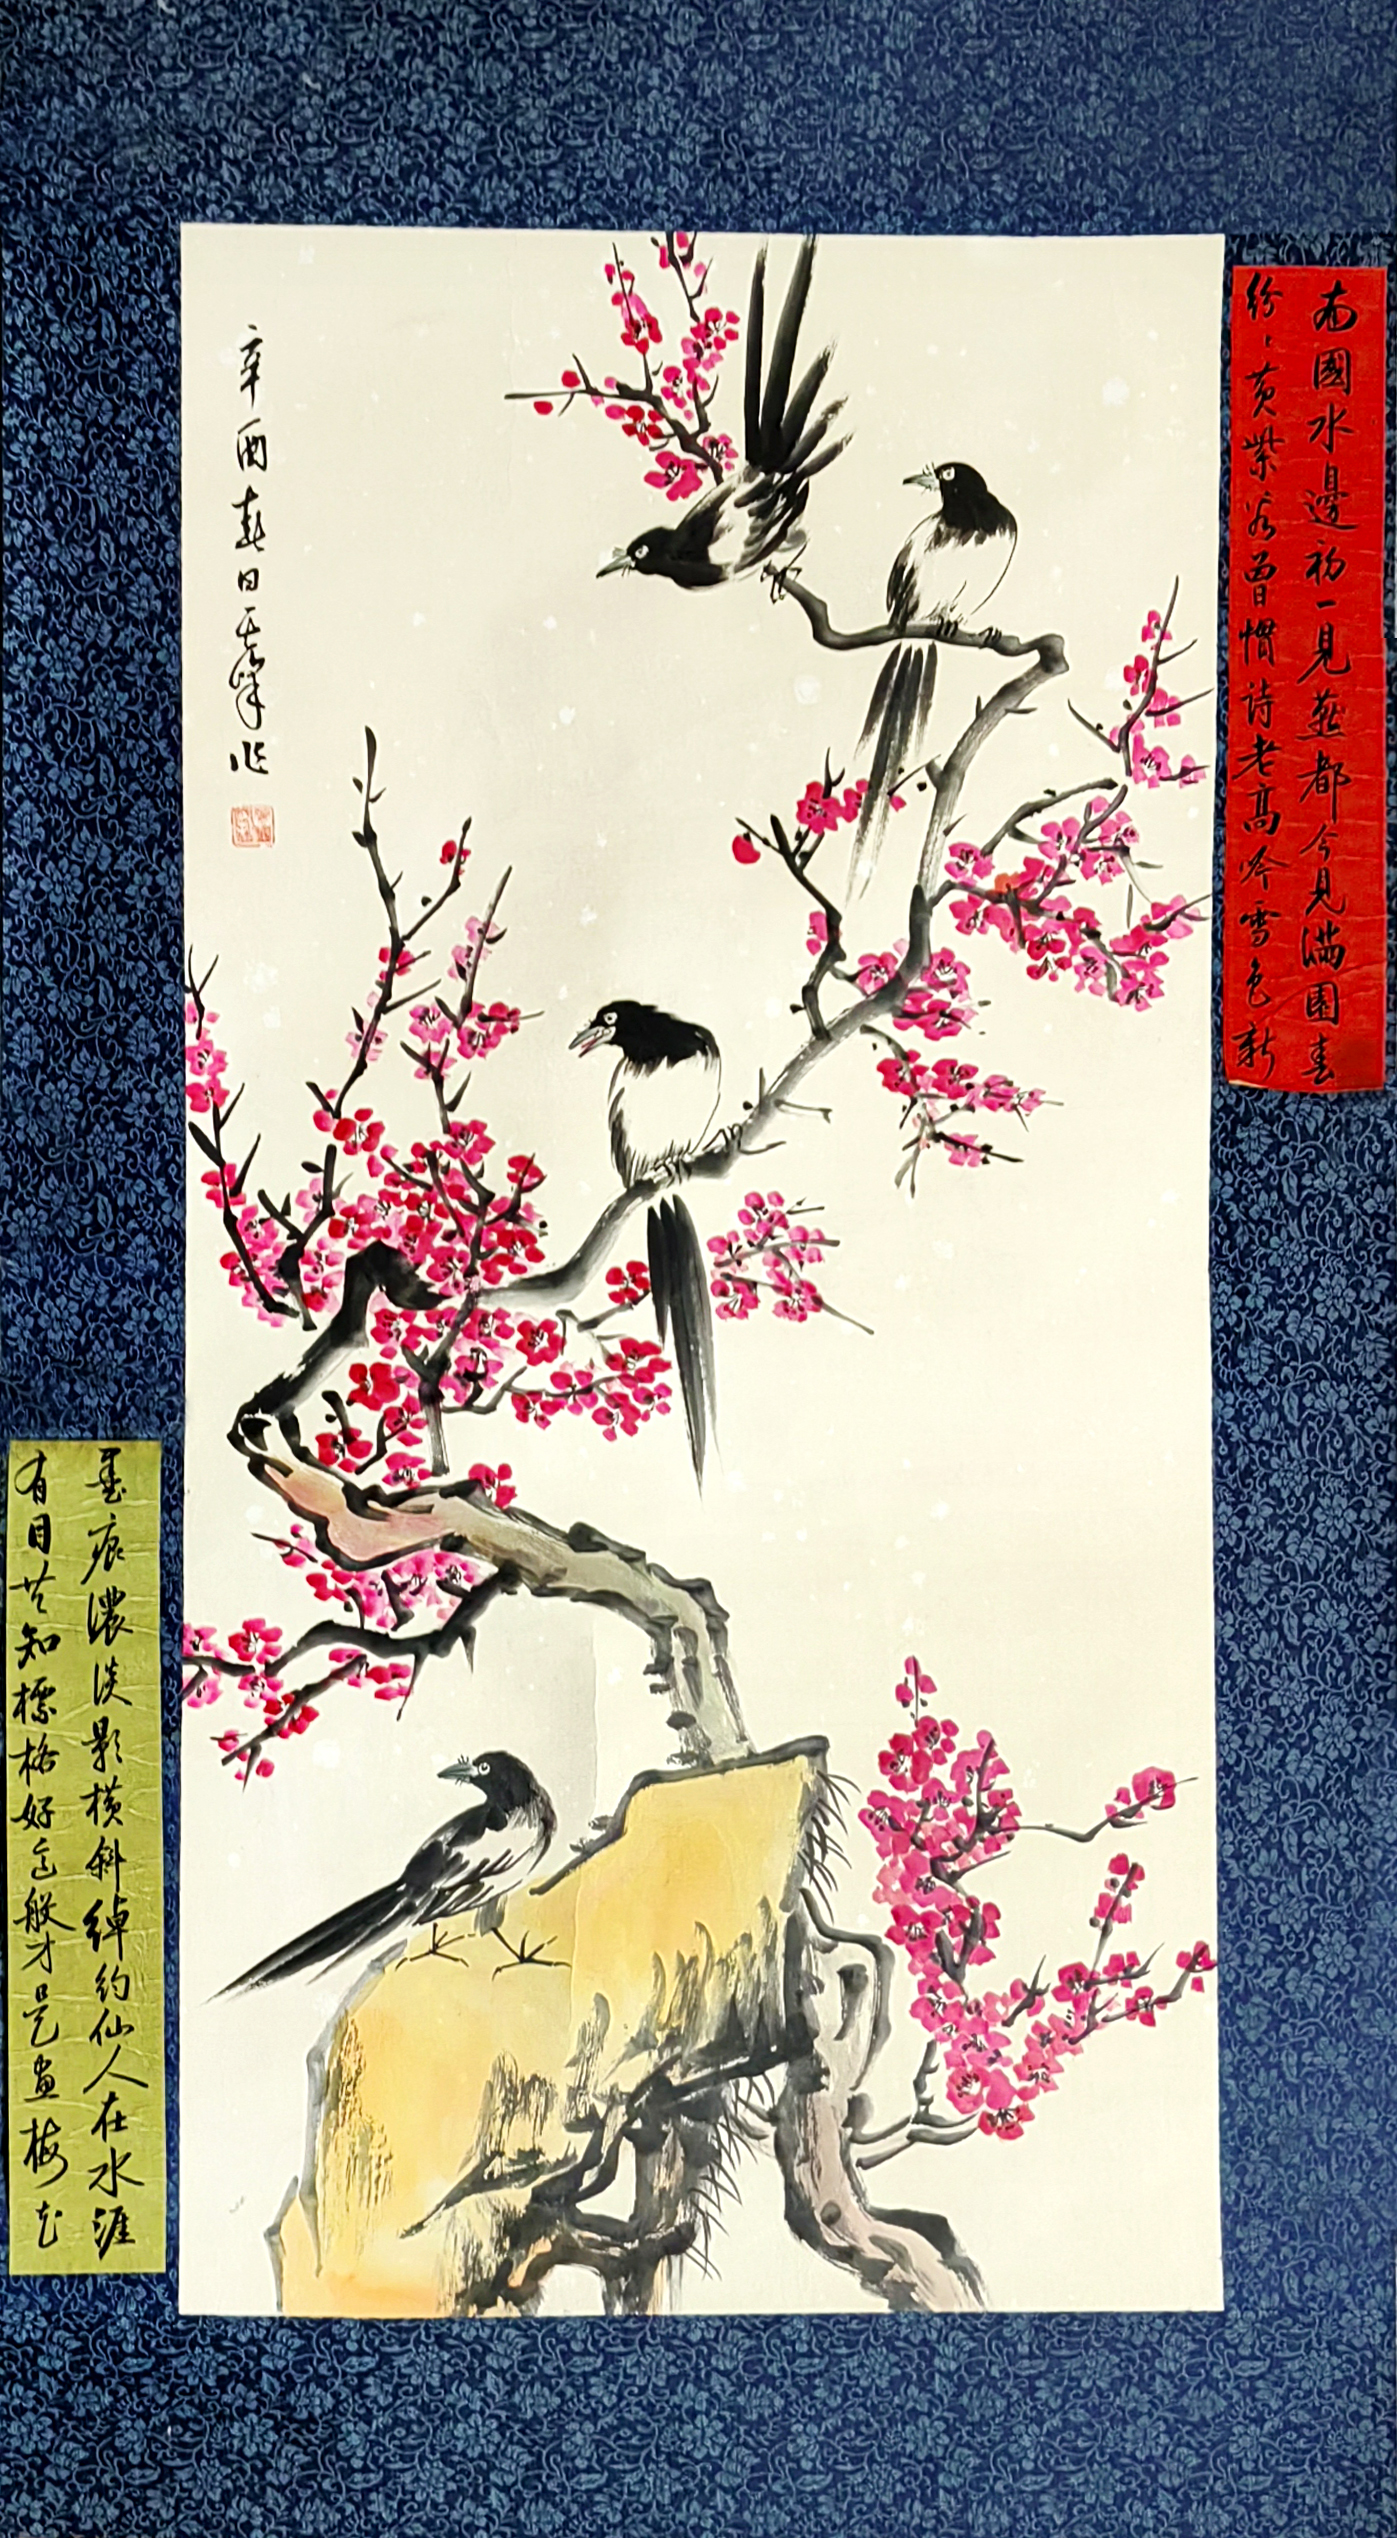 南國水邊初一見燕都今見滿園春
紛紛黃紫家曾慣詩老高吟雪色新
辛酉春日天峰作
墨痕濃淡影橫斜綽約仙人在水涯
有目共知標格好這般才是畫梅花